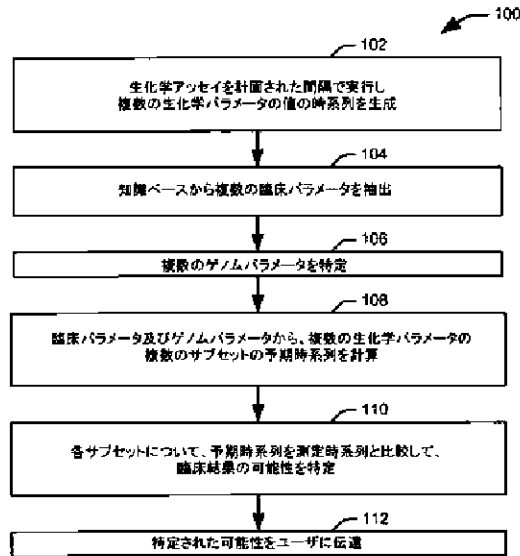 100
102
生化学アッセイを計画された間隔で実行し
複数の生化学パラメータの値の時系列を生成
104
知識ベースから複数の臨床パラメータを抽出
106
複数のゲノムパラメータを特定
108
臨床パラメータ及びゲノムパラメータから、複数の生化学パラメータの
複数のサブセットの予期時系列を計算
110
各サブセットについて、予期時系列を測定時系列と比較して、
臨床結果の可能性を特定
112
特定された可能性をユーザに伝達